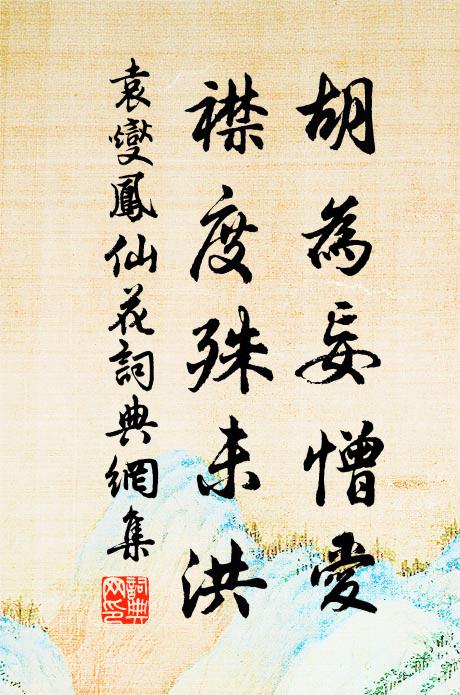 胡為妄憎愛
襟度殊未洪
袁燮鳳仙花詞典網集
詞典網印